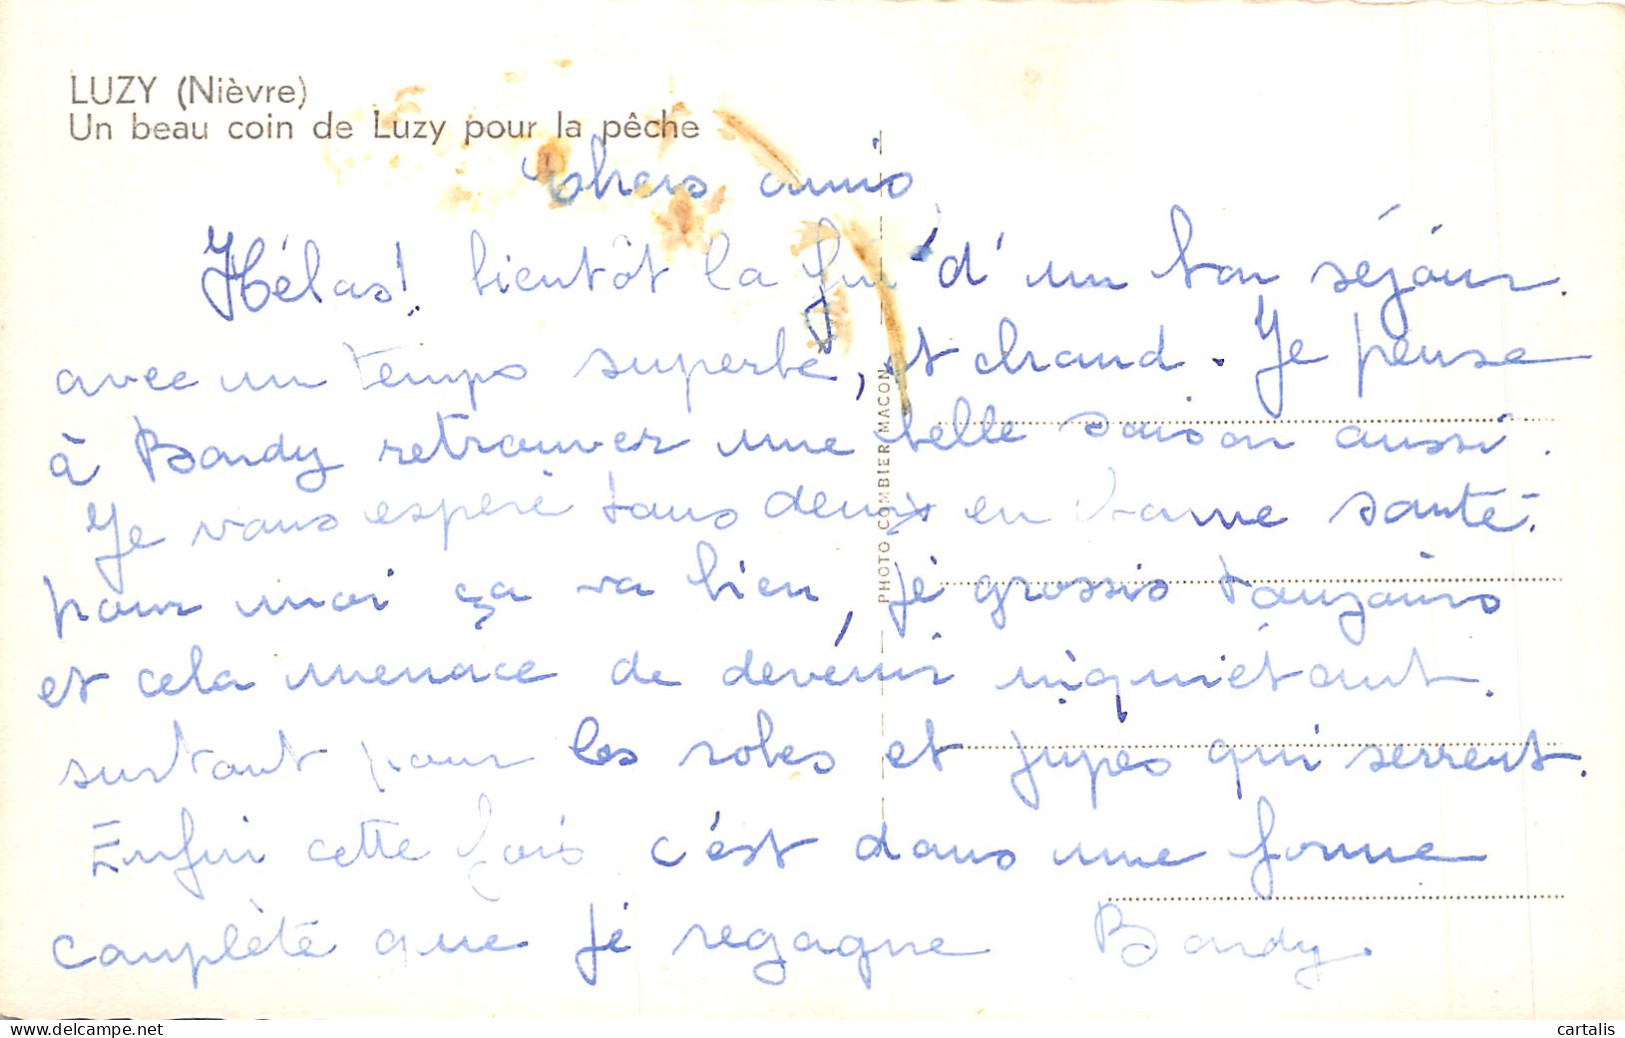 LUZY (Nièvre)
Un beau coin de Luzy pour la pêche
Chers amis,
Hélas! bientôt la fin d'un bon séjour.
avec un temps superbe, et chaud. Je pense
à Bandy retrouver une belle saison aussi.
Je vous espère tous deux en bonne santé.
pour moi ça va bien, je grossis toujours
et cela menace de devenir inquiétant.
surtout pour les robes et jupes qui serrent.
Enfin cette fois c'est dans une forme
complète que je regagne Bandy.
PHOTO COMBIER MACON
www.delcampe.net
cartalis